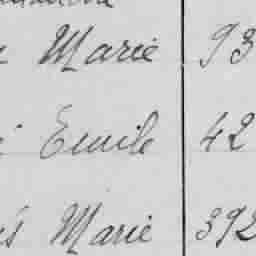 Marie 93
Emile 42
Marie 392